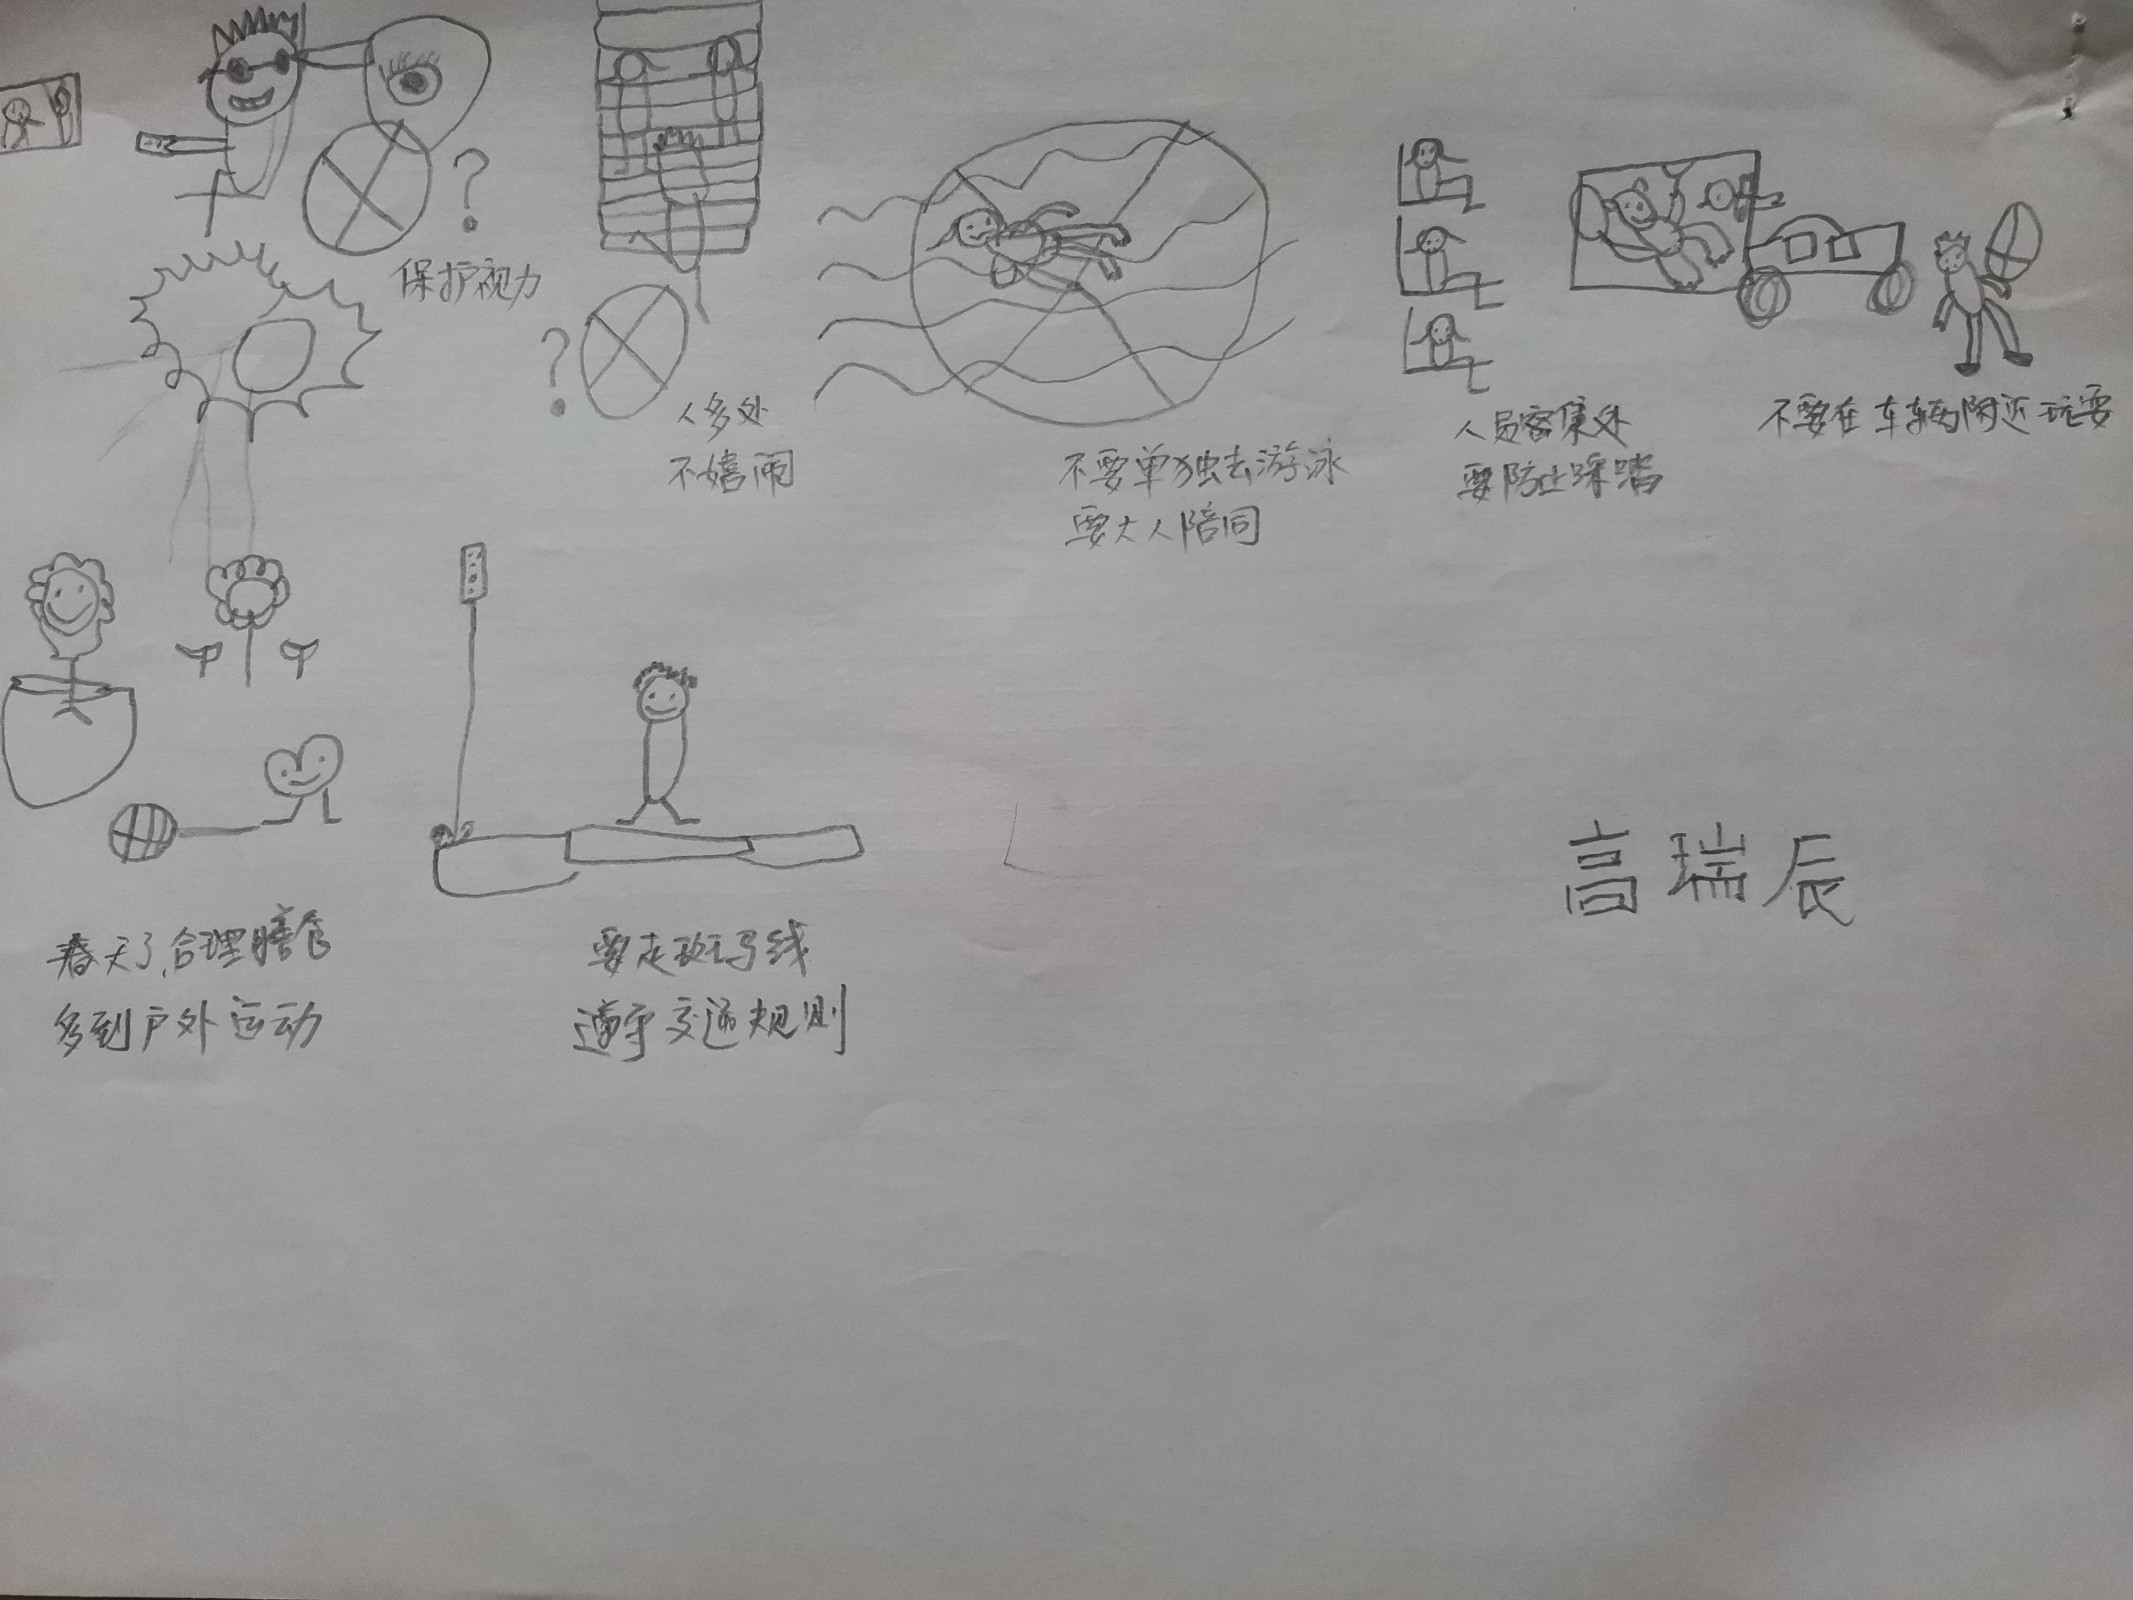 保护视力
人多处
不嬉闹
不要单独去游泳
要大人陪同
人员密集处
要防止踩踏
不要在车辆附近玩耍
春天了,合理膳食
多到户外运动
要走斑马线
遵守交通规则
高瑞辰